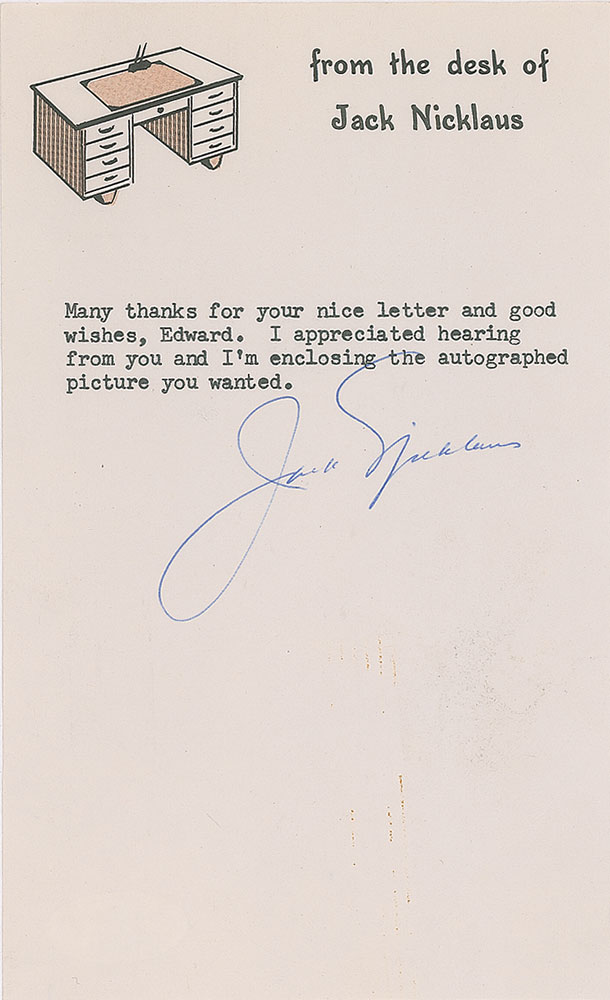 from the desk of
Jack Nicklaus
Many thanks for your nice letter and good
wishes, Edward.  I appreciated hearing
from you and I'm enclosing the autographed
picture you wanted.
Jack Nicklaus